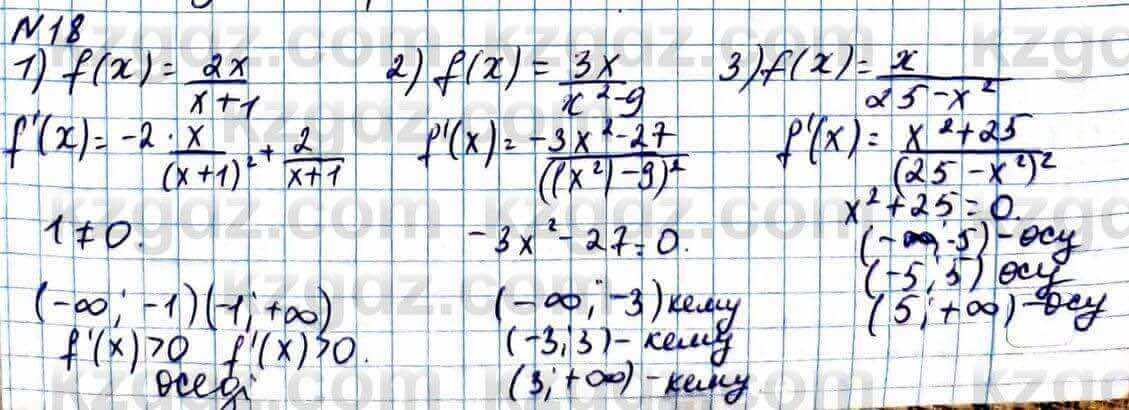 N18
1) f(x) = 2x/(x+1)
f'(x) = -2 · x/(x+1)² + 2/(x+1)
1 ≠ 0.
(-∞; -1) (-1; +∞)
f'(x) > 0 f'(x) > 0.
өседі
2) f(x) = 3x/(x²-9)
f'(x) = (-3x²-27)/((x²)-9)²
-3x²-27=0.
(-∞; -3) кему
(-3; 3) - кему
(3; +∞) - кему
3) f(x) = x/(25-x²)
f'(x) = (x²+25)/(25-x²)²
x²+25=0.
(-∞; -5) - өсу
(-5; 5) өсу
(5; +∞) - өсу
kzgdz.com